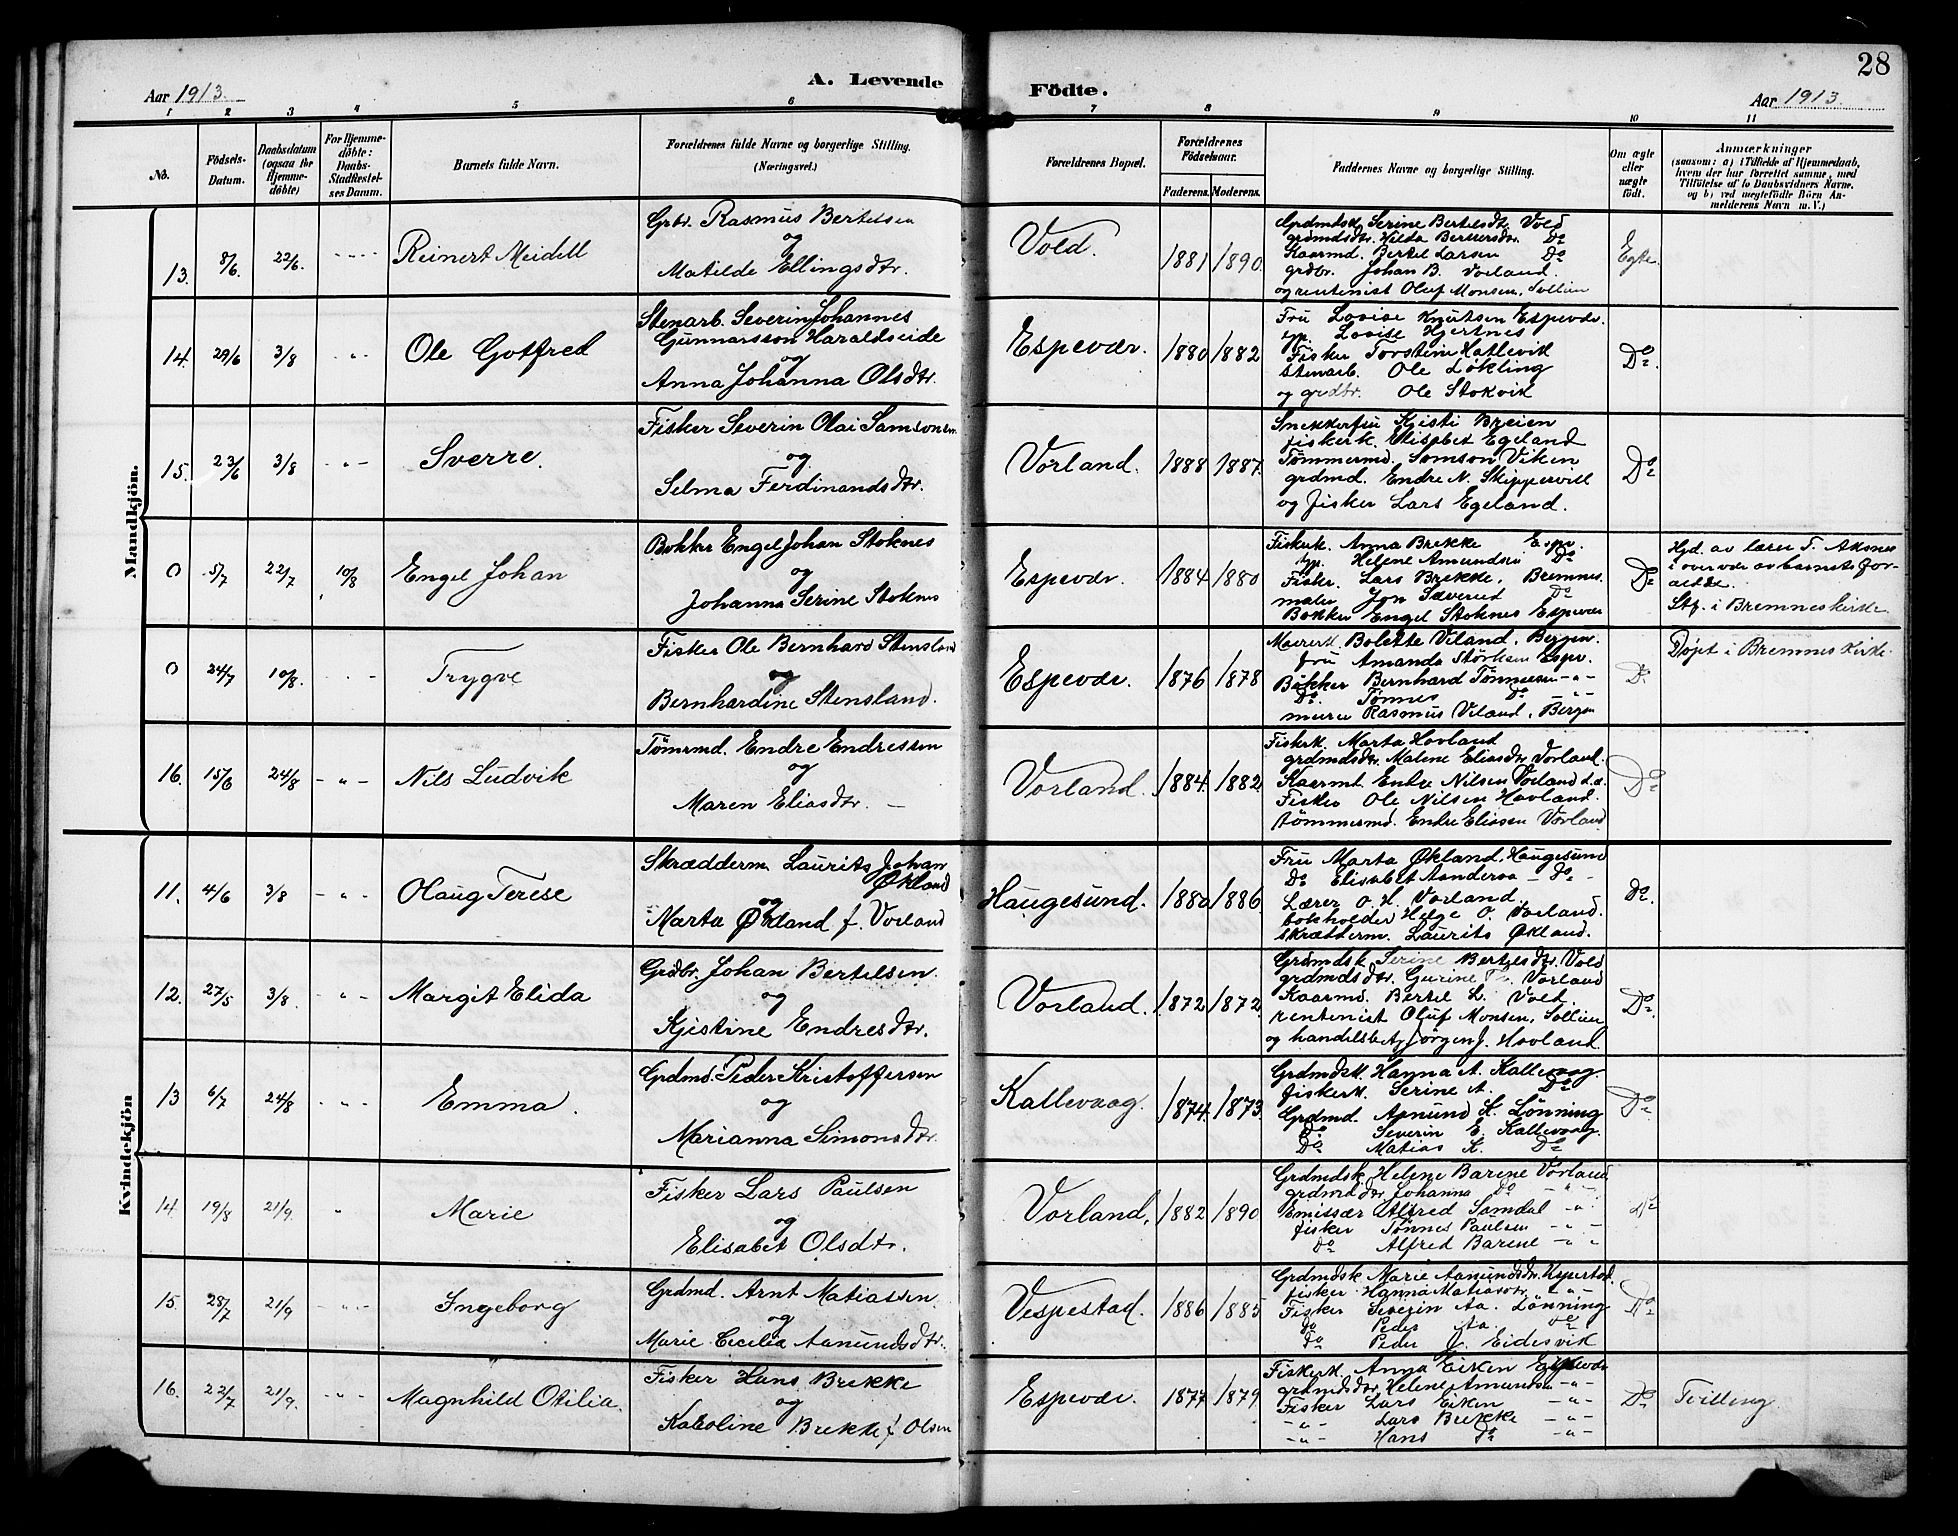 28
A. Levende Födte.
Aar 1913.
Aar 1913.
1 2 3 4 5 6 7 8 9 10 11
No.
Födsels-Datum.
Daabsdatum (ogsaa for Hjemmedöbte)
For Hjemmedöbte: Daabs-Stadfestelses Datum.
Barnets fulde Navn.
Forældrenes fulde Navne og borgerlige Stilling. (Næringsvei.)
Forældrenes Bopæl.
Forældrenes Födselsaar.
Faderens. Moderens.
Faddernes Navne og borgerlige Stilling.
Om ægte eller uægte födt.
Anmærkninger
(saasom: a) i Tilfælde af Hjemmedaab,
hvem der har forrettet samme, med
Tilföielse af to Daabsvidners Navne,
og b) ved uegtefödte Börn An-
melderens Navn m. V.)
Mandkjön.
13. 8/6. 22/6. Reinert Meidell
Grbr. Rasmus Bertelsen
og
Matilde Ellingsdtr.
Vold. 1881 1890.
Grdmdsk Serine Bertelsdtr Vold
grdmdsdtr. Hilda Do
Kaarmd. Bertel Larsen Do
grdbr. Johan B. Vorland.
og rentenist Oluf Monsen,
Egte.
14. 29/6 3/8 -"- Ole Gotfred
Stenarb. Severin Johannes
Gunnarsson Haraldseide
og
Anna Johanna Olsdtr.
Espevær. 1880 1882
Fru Lovise Knutsen Espevær.
Lovise Hjertnes
Fisker Torstein Hatlevik
Stenarb. Ole Løkling
og grdbr. Ole Stokvik
Do
15. 23/6 3/8 -"- Sverre.
Fisker Severin Olai Samsonsen
og
Selma Ferdinandsdtr.
Vorland. 1888 1887.
Snekkerfru Kjisti Breien
fiskerk. Elisabet Egeland
Tømmermd. Samson Viken
grdmd. Endre N. Skippervill
og fisker Lars Egeland.
Do
0 5/7 22/7 10/8 Engel Johan
Bøkker Engel Johan Stoknes
og
Johanna Serine Stoknes
Espevær. 1884 1880
Fiskerk. Anna Brekke Espv.
Helene Amundsen Do
Fisker. Lars Brekke, Bremnes.
maler Jon Sæverud Do
Bøkker Engel Stoknes Espevær
Do
Hjd. av lærer T. Aksnes
i overvær av barnets for-
ældre.
Stf. i Bremnes kirke.
0 24/7 10/8. Trygve
Fisker Ole Bernhard Stensland
og
Bernhardine Stensland.
Espevær. 1876 1878
Bolette Viland, Bergen.
fru Amanda Størksen Espv.
Bøkker Bernhard Tønnesen -"-
Do. Tønnes Do -"-
murer Rasmus Viland, Bergen
Do
Døpt i Bremnes Kirke.
16. 15/6 24/8 -"- Nils Ludvik
Tømmd. Endre Endressen
og
Maren Eliasdtr.
Vorland. 1884. 1882
Fiskerk. Marta Hovland
grdmdsdtr. Malene Eliasdtr Vorland.
Kaarmd. Endre Nilsen Vorland
Fisker Ole Nilsen Hovland.
tømmermd. Endre Eliassen Vorland
Do
Kvindekjön
11. 4/6 3/8 -"- Olaug Terese
Skrædderm. Laurits Johan
Økland
og
Marta Økland f. Vorland
Haugesund. 1880 1886.
Fru Marta Økland, Haugesund
Do Elisabet Aanderaa - Do -
Lærer O. H. Vorland.
bokholder Helge O. Vorland.
skrædderm. Laurits Økland.
Do
12. 27/5 3/8 -"- Margit Elida
Grdbr. Johan Bertelsen.
og
Kjistine Endresdtr.
Vorland. 1872 1872
Grdmdsk. Serine Bertelsdtr. Vold
grdmdsdtr. Gurine Vorland
Kaarmd. Bertel L. Vold.
rentenist Oluf Monsen,
og handelsbetj. Jørgen J. Hovland.
Do
13 6/7 24/8 -"- Emma.
Grdmd. Peder Kristoffersen
og
Marianna Simonsdtr.
Kallevaag. 1874. 1873.
Grdmdsk. Hanna A. Kallevaag.
fiskerk. Serine A. Do
Grdmd. Amund K. Lønning
Do Severin E. Kallevaag.
Do Matias K. Do
Do
14. 19/8 21/9. " Marie
Fisker Lars Paulsen
og
Elisabet Olsdtr.
Vorland, 1882 1890
Grdmdsk. Helene Barene Vorland
grdmdsdtr Johanna Do -"-
Emissær Alfred Samdal -"-
fisker Tønnes Paulsen -"-
Do Alfred Barene -"-
Do
15. 28/7 21/9 -"- Ingeborg
Grdmd. Arnt Matiassen.
og
Marie Cecilia Aamundsdtr.
Vespestad. 1886 1885
Grdmdsk Marie Aamundsdtr. Vespestad.
fisker Hanna Matiasdtr. -"-
Fisker Severin Aa. Lønning
Do Peder Aa. Do
Do Peder J. Eidesvik
Do
16. 22/7 21/9. -"- Magnhild Otilia.
Fisker Hans Brekke
og
Karoline Brekke f. Olsen
Espevær. 1877 1879
Fiskerk. Anna Eiken Espevær
grdmdsdtr. Helene Amundsen -"-
Fisker Lars Eiken -"-
-"- Lars Brekke -"-
-"- Hans Do -"-
Do
Tvilling.